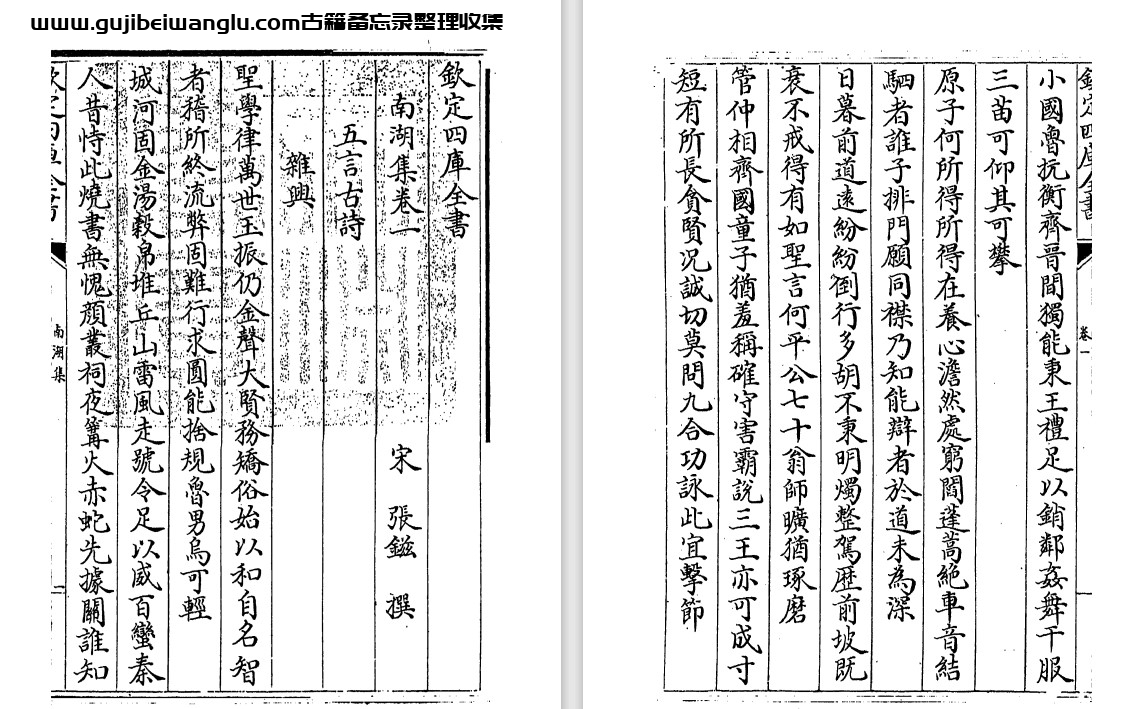 www.gujibeiwanglu.com古籍备忘录整理收集
欽定四庫全書
南湖集卷一 宋 張鎡 撰
五言古詩
雜興
聖學律萬世玉振仍金聲大賢務矯俗始以和自名智
者稽所終流弊固難行求圓能捨規魯男烏可輕
城河固金湯穀帛堆丘山雷風走號令足以威百蠻秦
人昔恃此燒書無愧顏叢祠夜篝火赤蛇先據關誰知
欽定四庫全書 南湖集 一
欽定四庫全書 卷一
小國魯抗衡齊晉間獨能秉王禮足以銷鄰姦舞干服
三苗可仰其可攀
原子何所得所得在養心澹然處窮閻蓬蒿絶車音結
駟者誰子排門願同襟乃知能辯者於道未為深
日暮前道遠紛紛倒行多胡不秉明燭整駕歴前坡既
衰不戒得有如聖言何平公七十翁師曠猶琢磨
管仲相齊國童子猶羞稱確守害霸説三王亦可成寸
短有所長貪賢况誠切莫問九合功詠此宜擊節